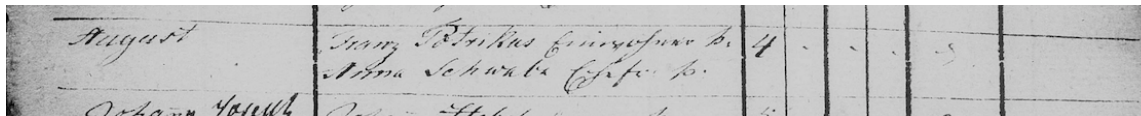 August Franz Potrikus Einwohner k. 4
Anna Schwabe Ehefr. k.
Johann Joseph Johann